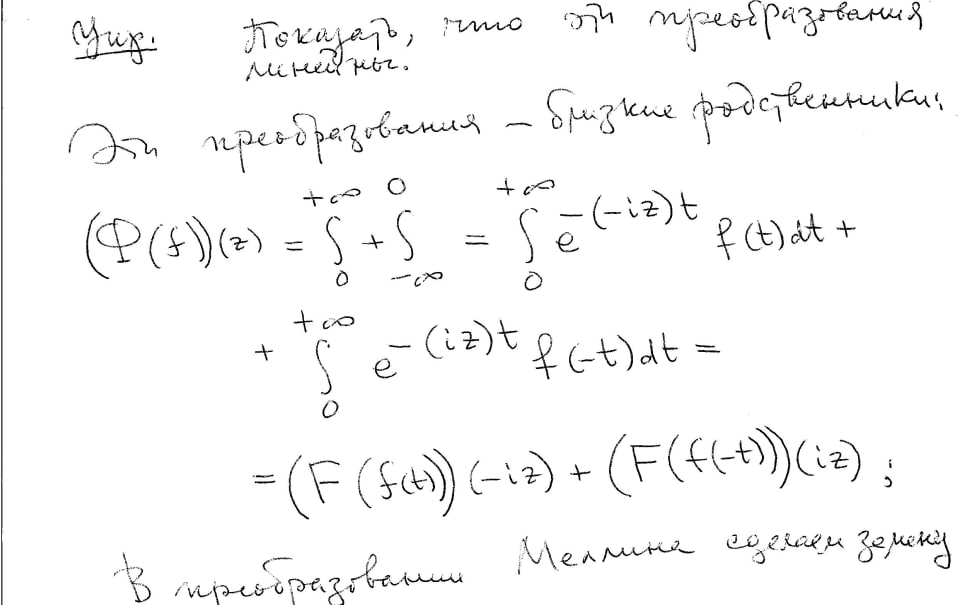 Упр. Показать, что эти преобразования
линейны.
Эти преобразования – близкие родственники:
(Φ(f))(z) = ∫₀^{+∞} + ∫_{-∞}^0 = ∫₀^{+∞} e^{-(-iz)t} f(t)dt +
+ ∫₀^{+∞} e^{-(iz)t} f(-t)dt =
= (F(f(t)))(-iz) + (F(f(-t)))(iz) ;
В преобразовании Меллина сделаем замену